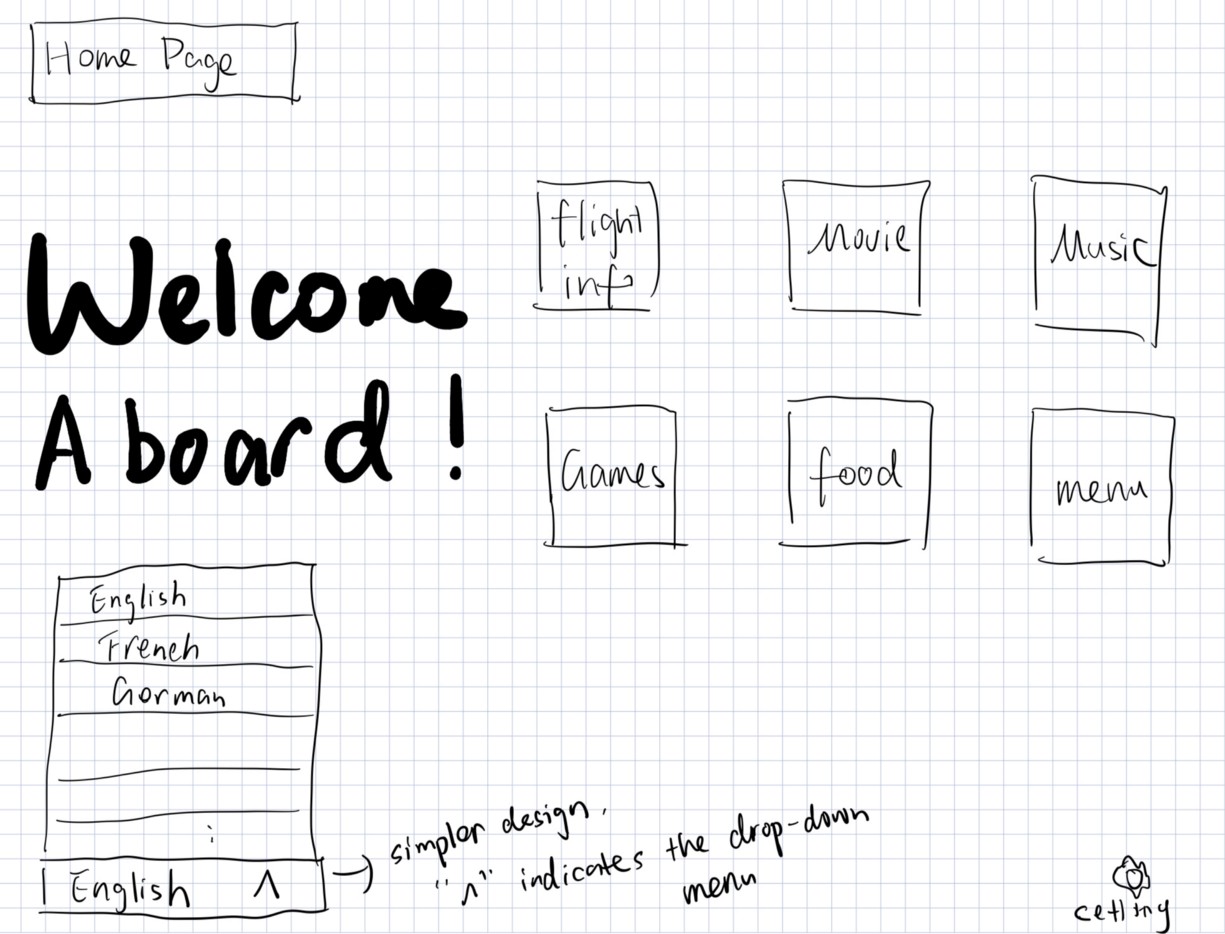 Home Page
Welcome
Aboard!
flight
info
Movie
Music
Games
food
menu
English
French
German
:
English ^
→ simpler design.
"^" indicates the drop-down
menu